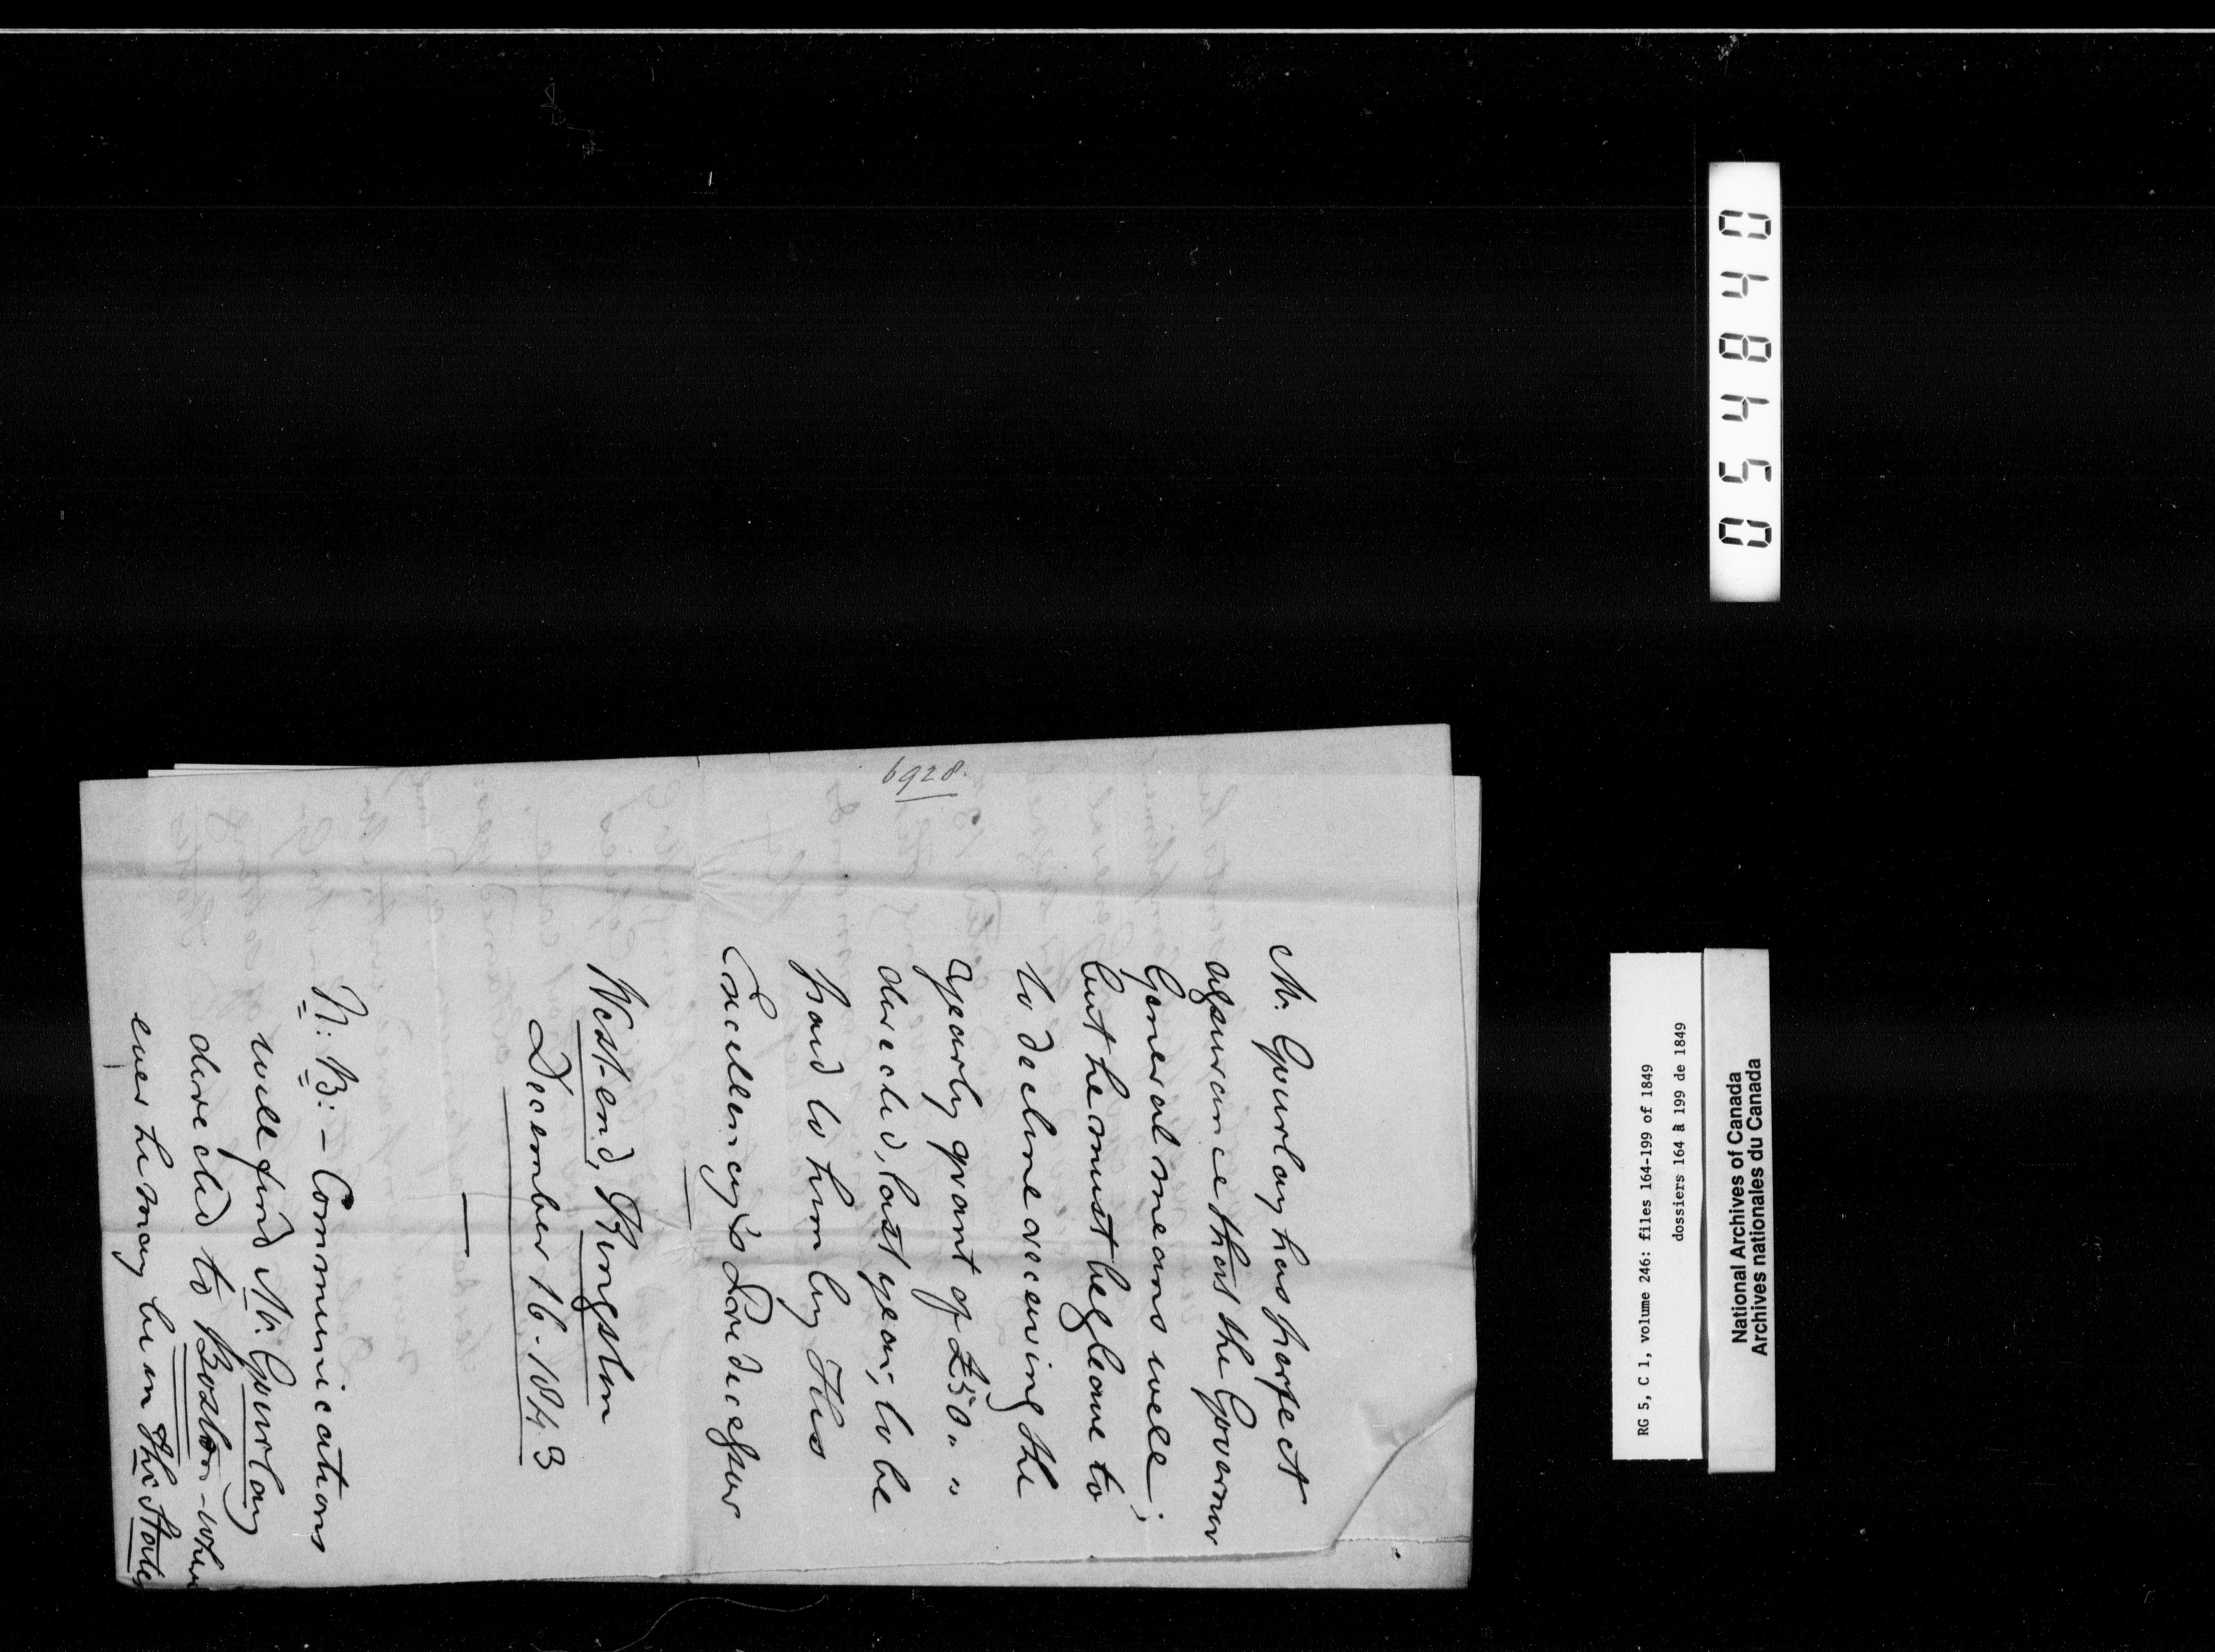 048450
6928
Mr. Gourlay has perfect
assurance that the Governor
General means well;
but he must beg leave to
to decline receiving the
yearly grant of £50 " "
directed, last year, to be
paid to him by His
Excellency's Predecessor
West-end, Kingston
December 16. 1843
N: B: - Communications
will find Mr. Gourlay
directed to Boston - wher
ever he may be in the States
RG 5, C 1, volume 246: files 164-199 of 1849
dossiers 164 à 199 de 1849
National Archives of Canada
Archives nationales du Canada